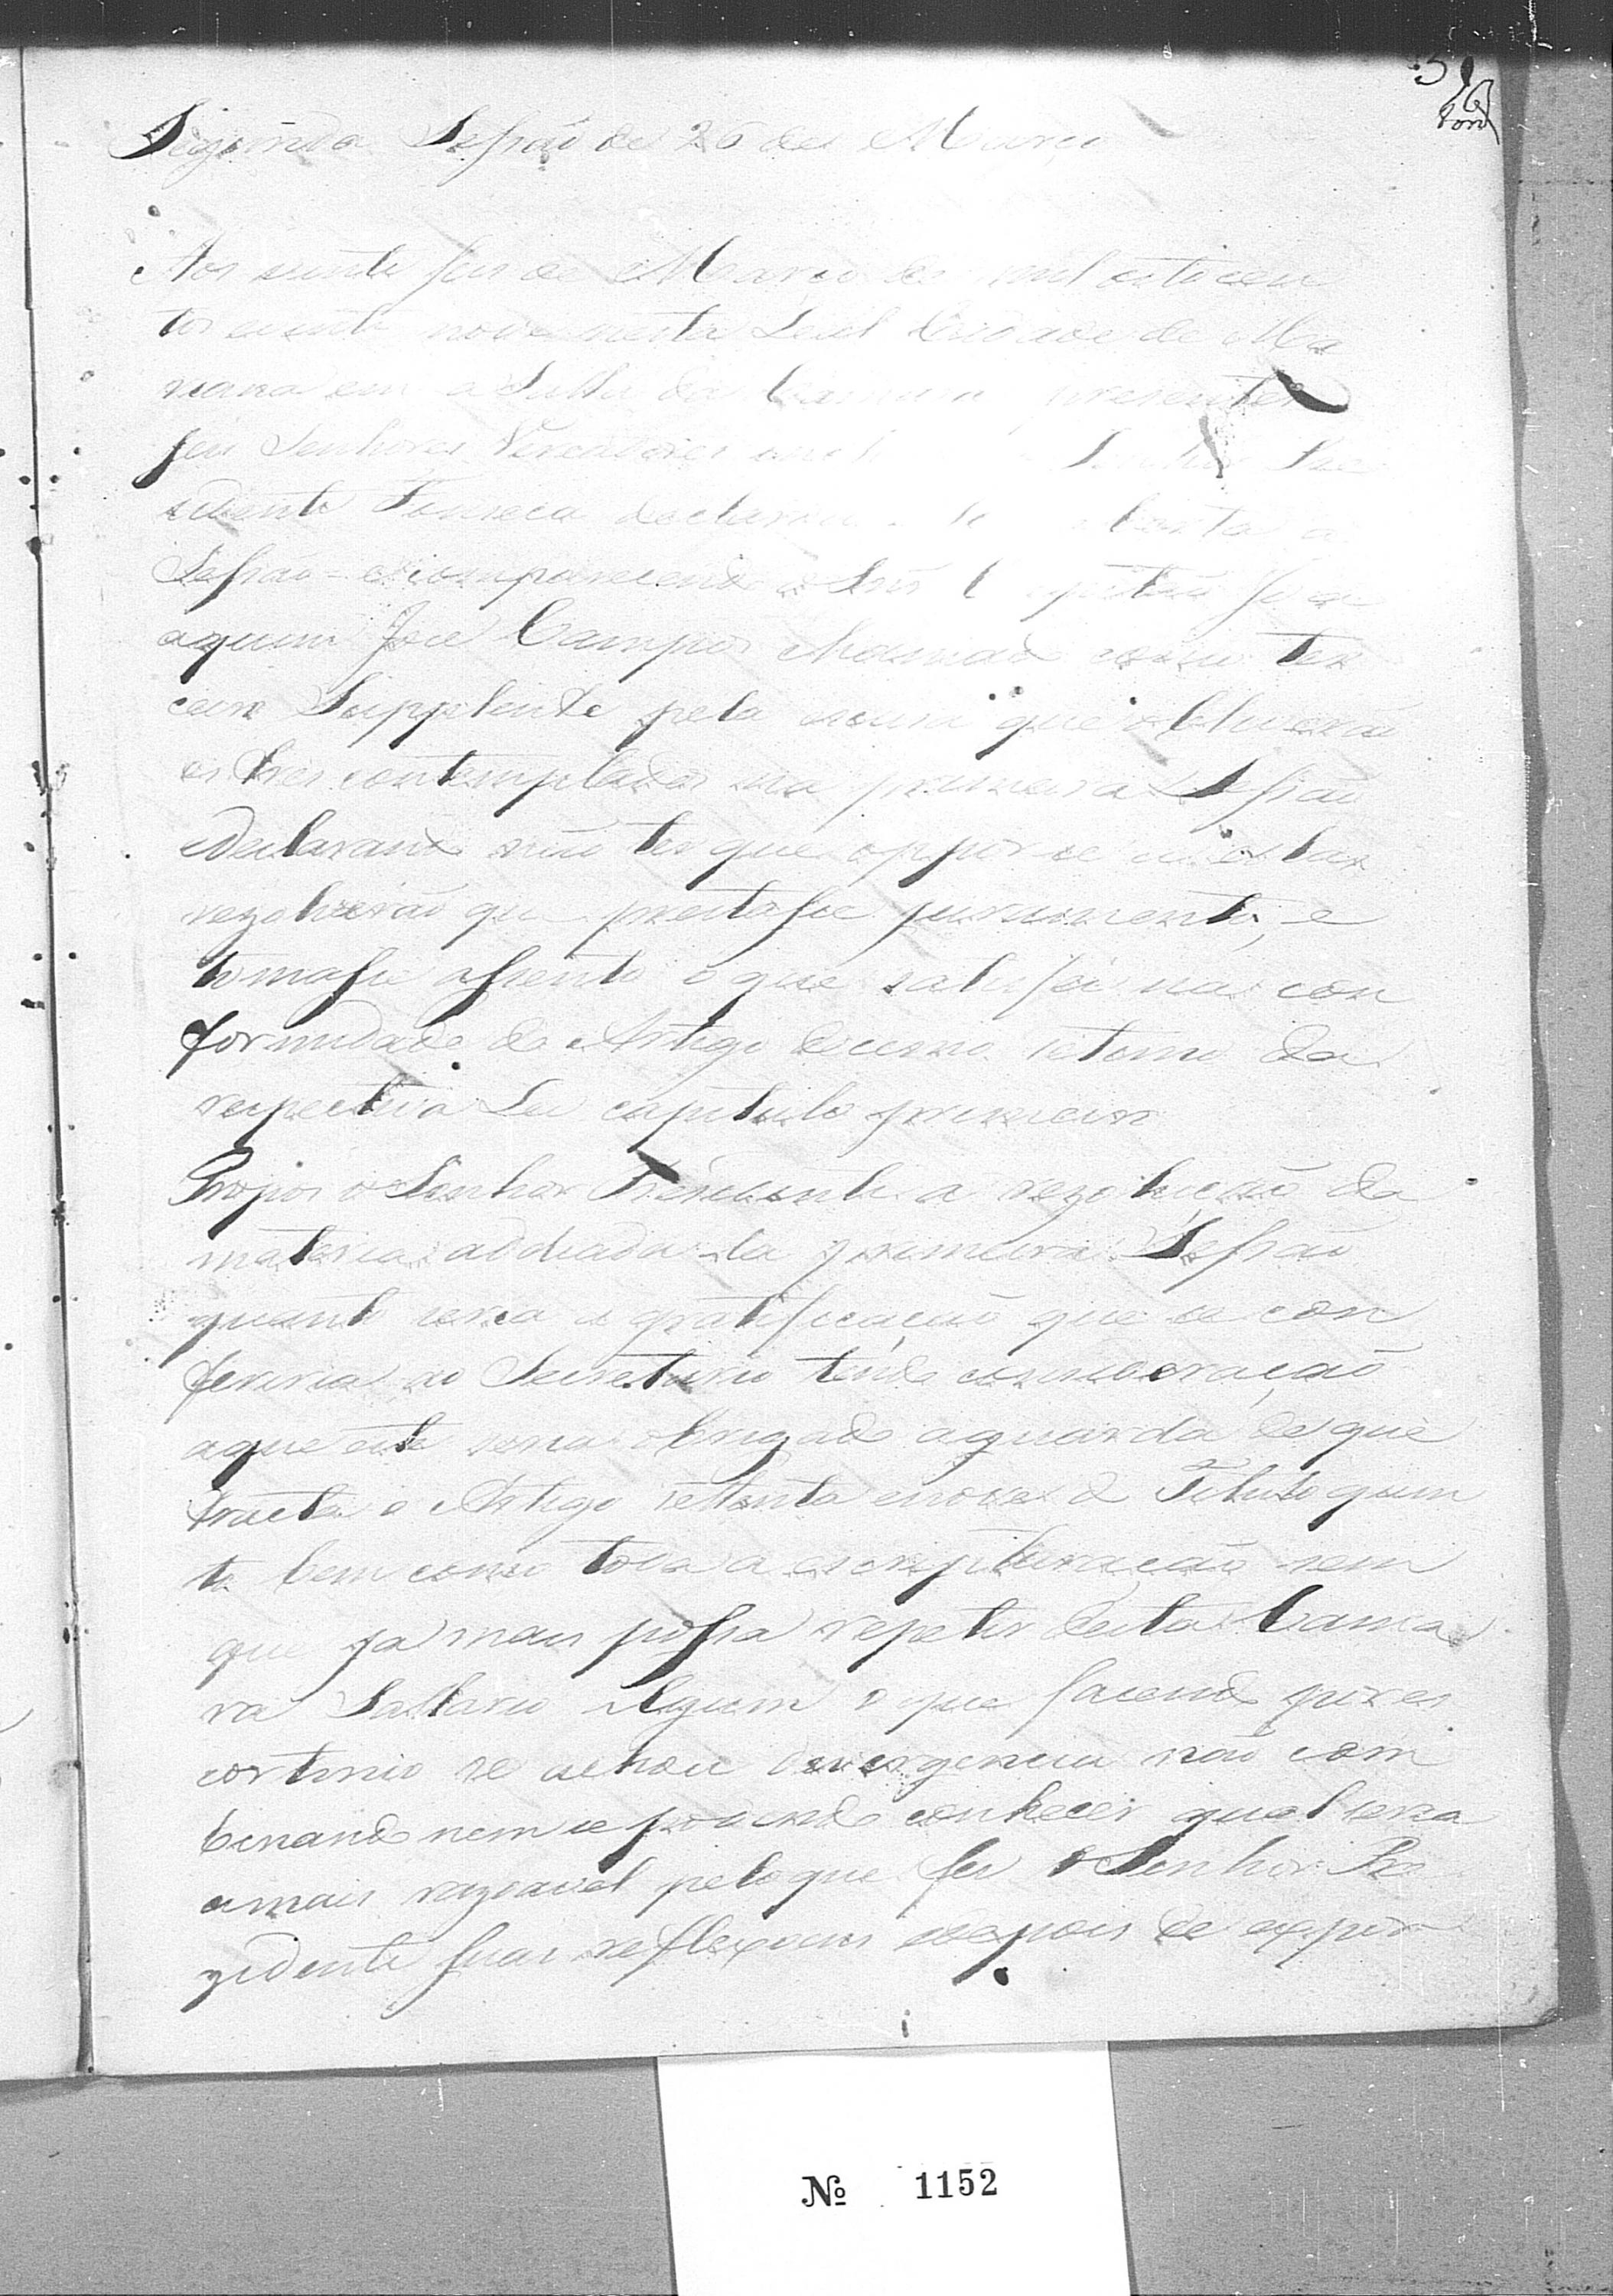 Segunda Sessaõ de 26 de Março
Aos vinte seis de Março de mil oitocen
tos vinte nove nesta Leal Cidade de Ma
riana em a Salla da Camara presentes
seis Senhores Vereadores Senhor Pre
sidente Fonseca declarou aberta a
Sessaõ - e comparecendo o Snr̃ Capitaõ Jo
aquim Joze Campos chamado como ter
ceiro Supplente pela que obtiveraõ
os tres contemplados na primeira Sessaõ
declarando naõ ter que oppor se a estas
rezolveraõ que prestasse juramento, e
tomasse assento o que satisfei na con
formidade do Artigo decimo setimo da
respectiva Lei capitulo primeiro
Propos o Senhor Prezidente a rezoluçaõ da
materia addiada da primeira Sessaõ
quanto seria a gratificaçaõ que se con
feriria ao Secretario tendo consideraçaõ
aque este seria obrigado aguarda de que
tracta o Artigo settenta enove do Titulo quin
to bem como toda a escripturaçaõ sem
que ja mais possa repetir desta Cama
ra Sallario Algum o que facendo por es
cortinio se achou divergencia naõ com
binando nem se podendo conhecer qual seria
amais razoavel peloque fes o Senhor Pre
zidente suas reflexoens depois de expor
Nº 1152